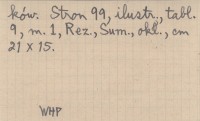 ków. Stron 99, ilustr., tabl.
9, m. 1, Rez., Sum., okł., cm
21 x 15.
WHP